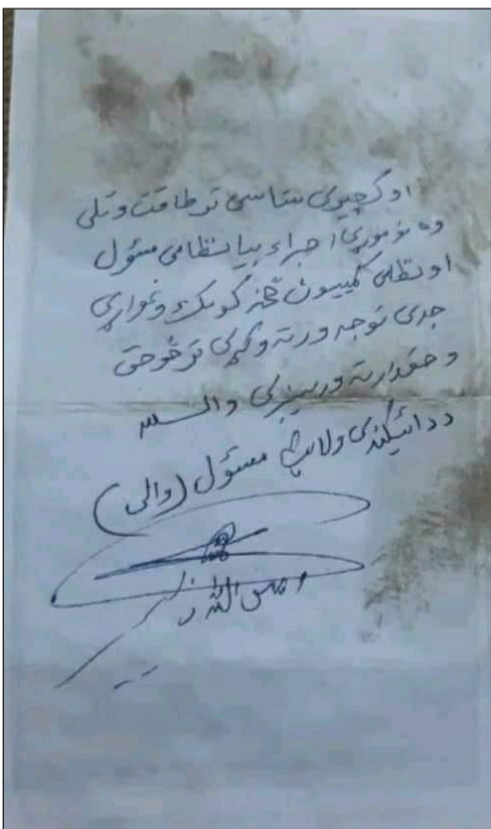 او کچیری ستاسی تر طاقت وتلی
وه نو موړی اجراء بیا نظامی مسئول
او نظامی کمیسون څخه کومک وغواړی
جدی توجه ورته وکړی تر څو حق
و حقدار ته ورسیږی والسلام
د دائیکندی ولایت مسئول (والی)